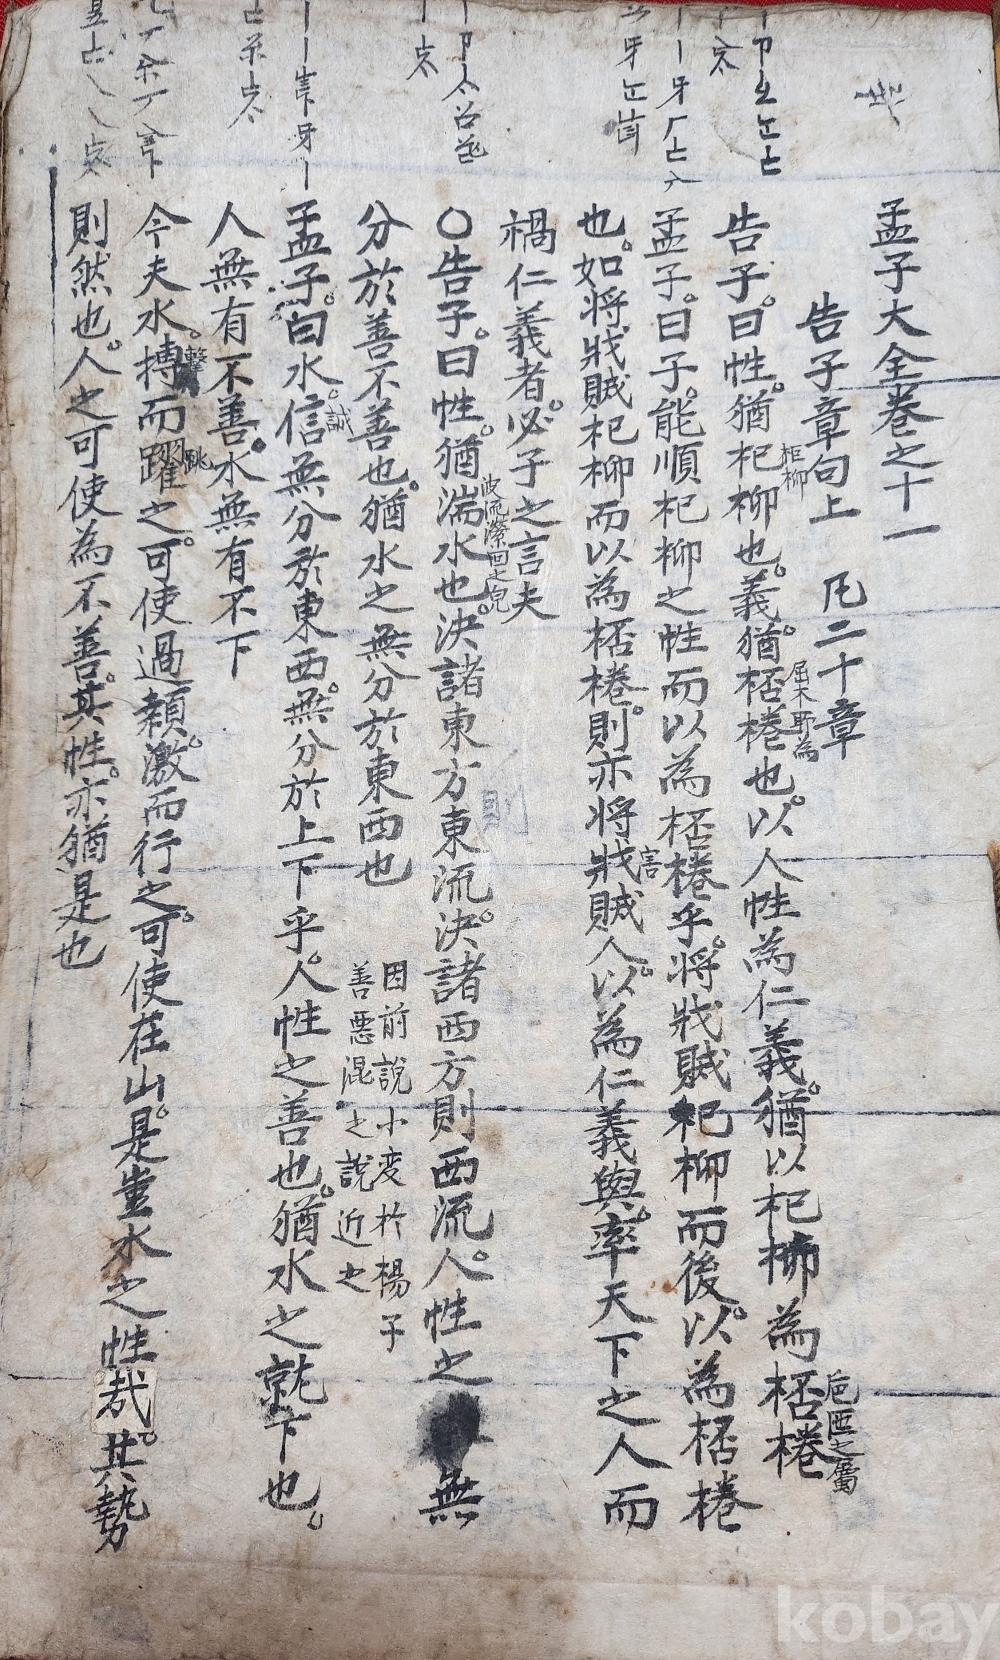 孟子大全卷之十一
告子章句上 凡二十章
告子曰性猶杞柳也義猶桮棬也以人性為仁義猶以杞柳為桮棬
柜柳
屈木所為
巵匜之屬
孟子曰子能順杞柳之性而以為桮棬乎將戕賊杞柳而後以為桮棬
也如將戕賊杞柳而以為桮棬則亦將戕賊人以為仁義與率天下之人而
害
禍仁義者必子之言夫
○告子曰性猶湍水也決諸東方東流決諸西方則西流人性之無
波流瀠回之皃
分於善不善也猶水之無分於東西也
因前說小変於楊子
善惡混之說近之
孟子曰水信無分於東西無分於上下乎人性之善也猶水之就下也
誠
人無有不善水無有不下
今夫水搏而躍之可使過顙激而行之可使在山是豈水之性哉其勢
擊
跳
則然也人之可使為不善其性亦猶是也
則
kobay